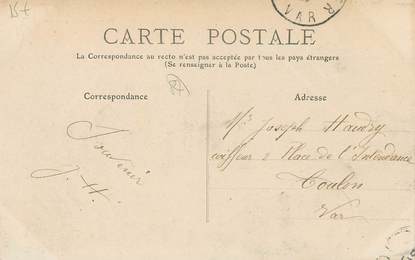 15 +
VAR
CARTE POSTALE
La Correspondance au recto n'est pas acceptée par tous les pays étrangers
(Se renseigner à la Poste)
Correspondance
Souvenir
J. H.
Adresse
Mr Joseph Haudry
coiffeur 2 Place de l'Intendance
Toulon
Var